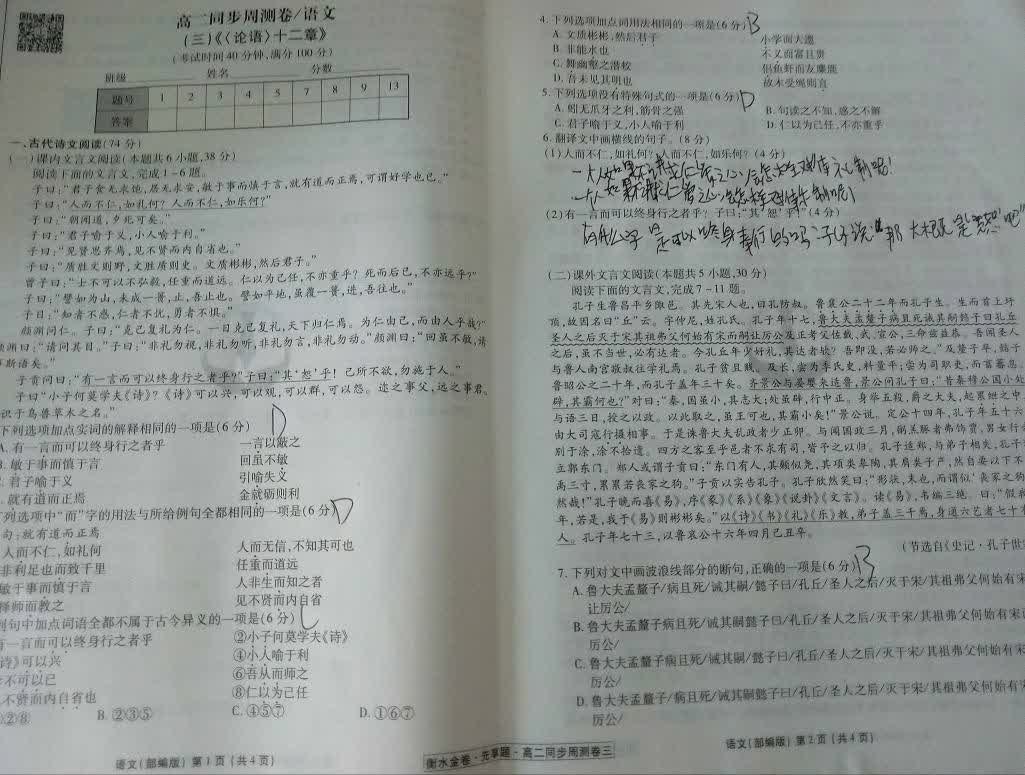 高二同步周测卷/语文
(三)《〈论语〉十二章》
(考试时间40分钟,满分100分)
班级 姓名 分数
题号 1 2 3 4 5 7 8 9 13
答案
一、古代诗文阅读(74分)
(一)课内文言文阅读(本题共6小题,38分)
阅读下面的文言文,完成1~6题。
子曰:“君子食无求饱,居无求安,敏于事而慎于言,就有道而正焉,可谓好学也已。”
子曰:“人而不仁,如礼何?人而不仁,如乐何?”
子曰:“朝闻道,夕死可矣。”
子曰:“君子喻于义,小人喻于利。”
子曰:“见贤思齐焉,见不贤而内自省也。”
子曰:“质胜文则野,文胜质则史。文质彬彬,然后君子。”
曾子曰:“士不可以不弘毅,任重而道远。仁以为己任,不亦重乎?死而后已,不亦远乎?”
子曰:“譬如为山,未成一篑,止,吾止也。譬如平地,虽覆一篑,进,吾往也。”
子曰:“知者不惑,仁者不忧,勇者不惧。”
颜渊问仁。子曰:“克己复礼为仁。一日克己复礼,天下归仁焉。为仁由己,而由人乎哉?”
颜渊曰:“请问其目。”子曰:“非礼勿视,非礼勿听,非礼勿言,非礼勿动。”颜渊曰:“回虽不敏,请
事斯语矣。”
子贡问曰:“有一言而可以终身行之者乎?”子曰:“其‘恕’乎!己所不欲,勿施于人。”
子曰“小子何莫学夫《诗》?《诗》可以兴,可以观,可以群,可以怨。迩之事父,远之事君,
识于鸟兽草木之名。”
下列选项加点实词的解释相同的一项是(6分) D
A. 有一言而可以终身行之者乎 一言以蔽之
B. 敏于事而慎于言 回虽不敏
君子喻于义 引喻失义
就有道而正焉 金就砺则利
列选项中“而”字的用法与所给例句全都相同的一项是(6分) D
句:就有道而正焉
人而不仁,如礼何 人而无信,不知其可也
非利足也而致千里 任重而道远
敏于事而慎于言 人非生而知之者
择师而教之 见不贤而内自省
句中加点词语全都不属于古今异义的一项是(6分) C
有一言而可以终身行之者乎 ②小子何莫学夫《诗》
诗》可以兴 ④小人喻于利
不可以已 ⑥吾从而师之
不贤而内自省也 ⑧仁以为己任
②⑧ B. ②③⑤ C. ④⑤⑦ D. ①⑥⑦
语文(部编版) 第1页(共4页)
4. 下列选项加点词用法相同的一项是(6分) B
A. 文质彬彬,然后君子 小学而大遗
B. 非能水也 不义而富且贵
C. 舞幽壑之潜蛟 侣鱼虾而友麋鹿
D. 吾未见其明也 故木受绳则直
5. 下列选项没有特殊句式的一项是(6分) D
A. 蚓无爪牙之利,筋骨之强 B. 句读之不知,惑之不解
C. 君子喻于义,小人喻于利 D. 仁以为己任,不亦重乎
6. 翻译文中画横线的句子。(8分)
(1)人而不仁,如礼何?人而不仁,如乐何?(4分)
(2)有一言而可以终身行之者乎?子曰:“其‘恕’乎!”(4分)
(二)课外文言文阅读(本题共5小题,30分)
阅读下面的文言文,完成7~11题。
孔子生鲁昌平乡陬邑。其先宋人也,曰孔防叔。鲁襄公二十二年而孔子生。生而首上圩
顶,故因名曰“丘”云。字仲尼,姓孔氏。孔子年十七,鲁大夫孟釐子病且死诫其嗣懿子曰孔丘
圣人之后灭于宋其祖弗父何始有宋而嗣让厉公及正考父佐戴、武、宣公,三命兹益恭。吾闻圣人
之后,虽不当世,必有达者。今孔丘年少好礼,其达者欤?吾即没,若必师之。”及釐子卒,懿子
与鲁人南宫敬叔往学礼焉。孔子贫且贱。及长,尝为季氏史,料量平;尝为司职吏,而畜蕃息。
鲁昭公之二十年,而孔子盖年三十矣。齐景公与晏婴来适鲁,景公问孔子曰:“昔秦穆公国小处
辟,其霸何也?”对曰:“秦,国虽小,其志大;处虽辟,行中正。身举五羖,爵之大夫,起累绁之中
与语三日,授之以政。以此取之,虽王可也,其霸小矣!”景公说。定公十四年,孔子年五十六
由大司寇行摄相事。于是诛鲁大夫乱政者少正卯。与闻国政三月,粥羔豚者弗饰贾,男女行者
别于涂,涂不拾遗。四方之客至乎邑者不求有司,皆予之以归。孔子适郑,与弟子相失,孔子
立郭东门。郑人或谓子贡曰:“东门有人,其颡似尧,其项类皋陶,其肩类子产,然自要以下不
禹三寸,累累若丧家之狗。”子贡以实告孔子。孔子欣然笑曰:“形状,末也,而谓似‘丧家之狗
然哉!”孔子晚而喜《易》,序《彖》《系》《象》《说卦》《文言》。读《易》,韦编三绝。曰:“假我
年,若是,我于《易》则彬彬矣。”以《诗》《书》《礼》《乐》教,弟子盖三千焉,身通六艺者七十有
人。孔子年七十三,以鲁哀公十六年四月己丑卒。
(节选自《史记·孔子世
7. 下列对文中画波浪线部分的断句,正确的一项是(6分) B
A. 鲁大夫孟釐子/病且死/诫其嗣/懿子曰/孔丘/圣人之后/灭于宋/其祖弗父何始有宋
让厉公/
B. 鲁大夫孟釐子病且死/诫其嗣懿子曰/孔丘/圣人之后/灭于宋/其祖弗父何始有宋
厉公/
C. 鲁大夫孟釐子病且死/诫其嗣/懿子曰/孔丘/圣人之后/灭于宋/其祖弗父何始有宋
厉公/
D. 鲁大夫孟釐子/病且死/诫其嗣懿子曰/孔丘/圣人之后/灭于宋/其祖弗父何始有宋
厉公/
语文(部编版) 第2页(共4页)
衡水金卷·先享题·高二同步周测卷三